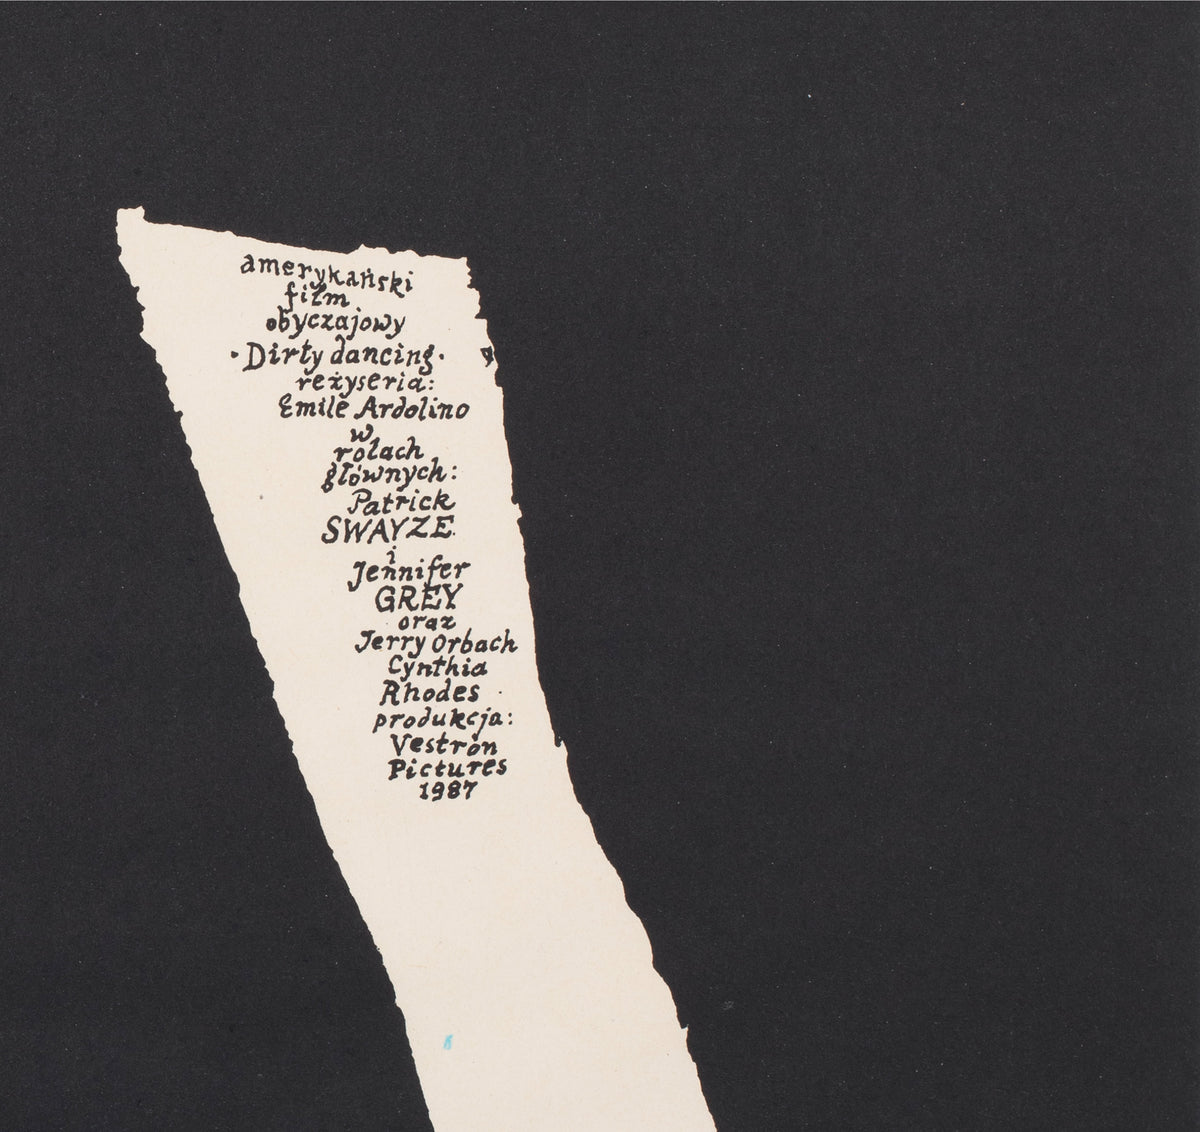 amerykański
film
obyczajowy
·Dirty dancing·
reżyseria:
Emile Ardolino
w
rolach
głównych:
Patrick
SWAYZE
i
Jennifer
GREY
oraz
Jerry Orbach
Cynthia
Rhodes
produkcja:
Vestron
Pictures
1987